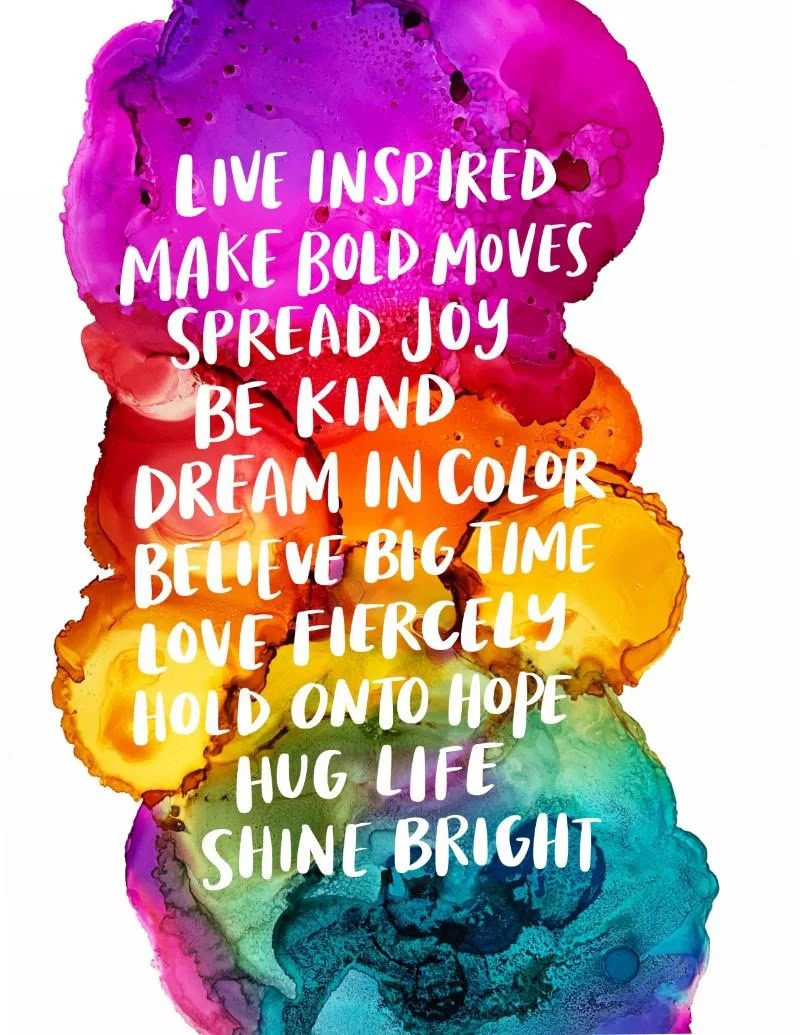 LIVE INSPIRED
MAKE BOLD MOVES
SPREAD JOY
BE KIND
DREAM IN COLOR
BELIEVE BIG TIME
LOVE FIERCELY
HOLD ONTO HOPE
HUG LIFE
SHINE BRIGHT